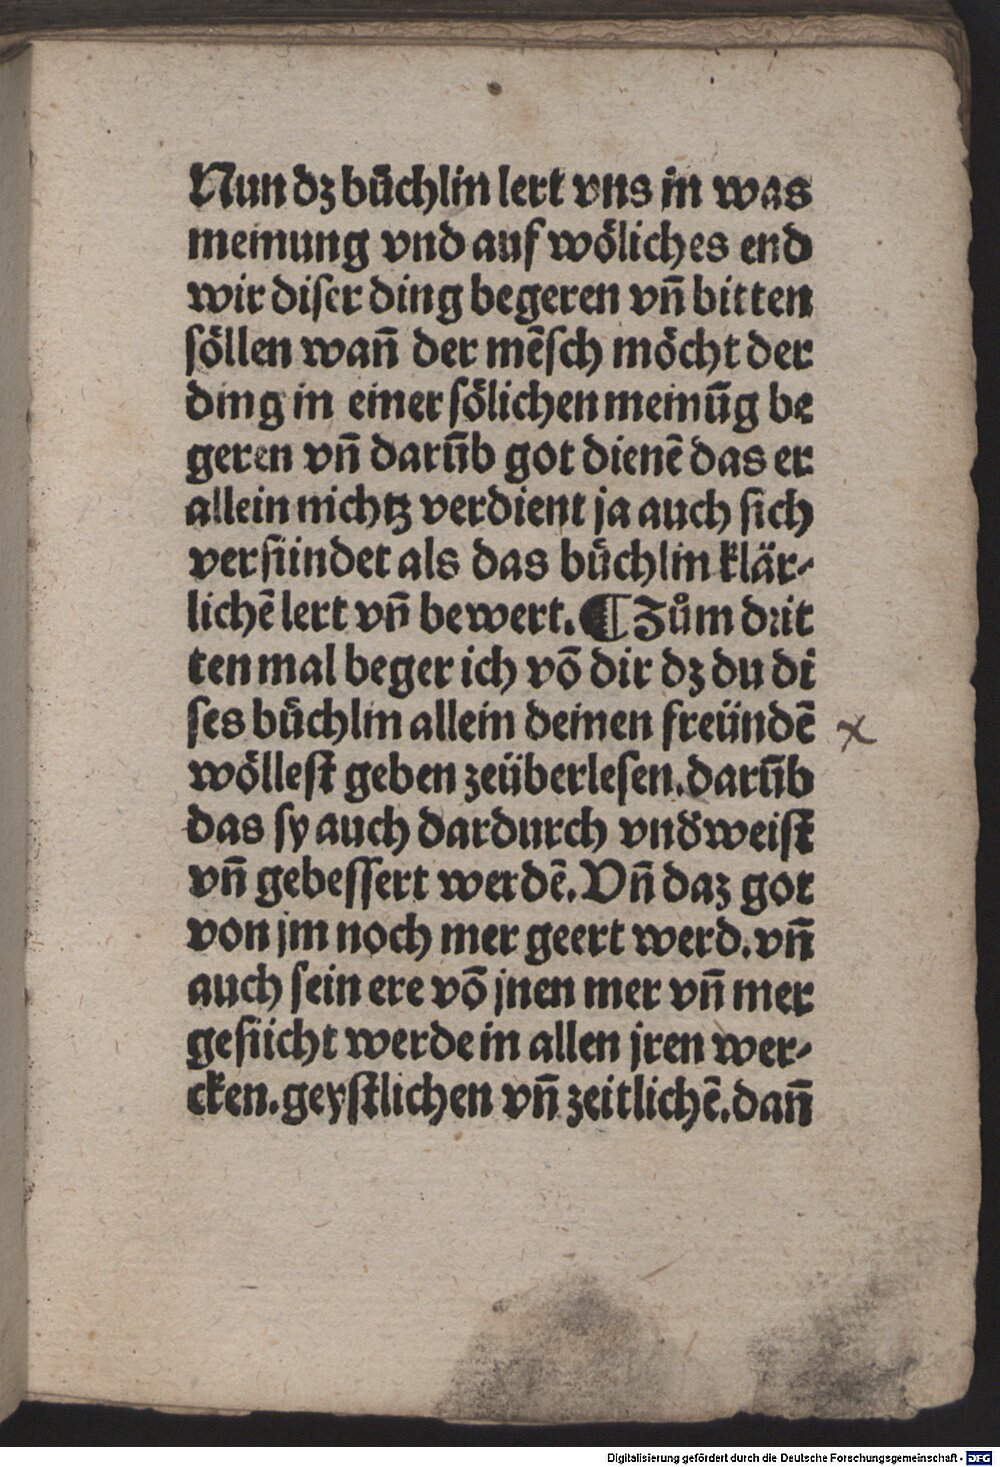 Nun dz büchlin lert vns in was
meinung vnd auf wöliches end
wir diser ding begeren vñ bitten
söllen wañ der mẽsch möcht der
ding in einer sölichen meinũg be
geren vñ darũb got dienẽ das er
allein nichtz verdient ja auch sich
versündet als das büchlin klär⸗
lichẽ lert vñ bewert. ¶ Zům drit
ten mal beger ich võ dir dz du di
ses büchlin allein deinen freündẽ
wöllest geben zeüberlesen. darũb
das sy auch dardurch vnd̕weist
vñ gebessert werdẽ. Vñ daz got
von jm noch mer geert werd. vñ
auch sein ere võ jnen mer vñ mer
gesücht werde in allen jren wer⸗
cken. geystlichen vñ zeitlichẽ. dañ
x
Digitalisierung gefördert durch die Deutsche Forschungsgemeinschaft - DFG